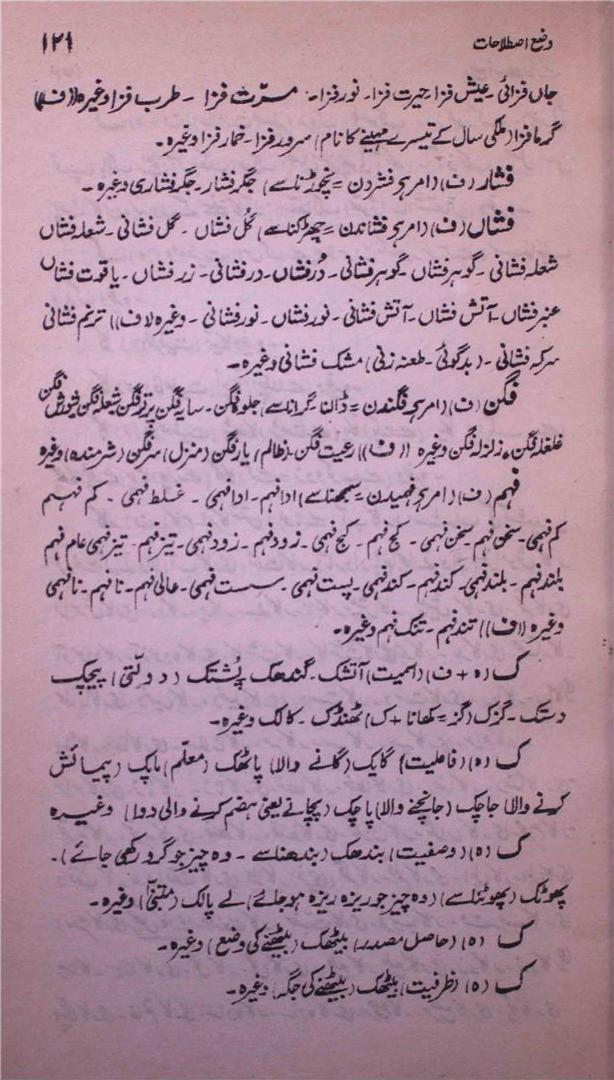 وضع اصطلاحات ۱۲۱
جاں فزائی۔ عیش فزا۔ حیرت فزا۔ نور فزا۔ مسرّت فزا۔ طرب فزا وغیرہ ((ف))
گرما فزا (ملکی سال کے تیسرے مہینے کا نام) سرور فزا۔ خمار فزا وغیرہ۔
فشار (ف) (امر بحر فشردن = نچوڑنا سے) جگر فشار۔ جگر فشاری وغیرہ۔
فشاں (ف) (امر بحر فشاندن = چھڑکنا سے) گُل فشاں۔ گل فشانی۔ شعلہ فشاں
شعلہ فشانی۔ گوہر فشاں۔ گوہر فشانی۔ دُر فشاں۔ در فشانی۔ زر فشاں۔ یاقوت فشاں
عنبر فشاں۔ آتش فشاں۔ آتش فشانی۔ نور فشاں۔ نور فشانی۔ وغیرہ ((ف)) ترنم فشانی
سرکہ فشانی۔ (بدگوئی۔ طعنہ زنی) مشک فشانی وغیرہ۔
فگن (ف) (امر بحر فگندن = ڈالنا۔ گرانا سے) جلوہ فگن۔ سایہ فگن۔ پرتو فگن۔ شعلہ فگن۔ شورش فگن
غلغلہ فگن۔ زلزلہ فگن وغیرہ ((ف)) رعیت فگن (ظالم) بار فگن (منزل) سر فگن (شرمندہ) وغیرہ
فہم (ف) (امر بحر فہمیدن = سمجھنا سے) ادا فہم۔ ادا فہمی۔ غلط فہمی۔ کم فہم
کم فہمی۔ سخن فہم۔ سخن فہمی۔ کج فہم۔ کج فہمی۔ زود فہم۔ زود فہمی۔ تیز فہم۔ تیز فہمی عام فہم
بلند فہم۔ بلند فہمی۔ کند فہم۔ کند فہمی۔ پست فہمی۔ سست فہمی۔ عالی فہم۔ نا فہم۔ نا فہمی
وغیرہ ((ف)) تند فہم۔ تنک فہم وغیرہ۔
ک (ہ + ف) (اسمیت) آتشک۔ گندھک پُشتک (دولتّی) پیچک
دستک۔ گزک (گز = کھانا + ک) ٹھنڈک۔ کالک وغیرہ۔
ک (ہ) (فاعلیت) گایک (گانے والا) پاٹھک (معلّم) ماپک (پیمائش
کرنے والا) جاچک (جانچنے والا) پاچک (پچانے یعنی ہضم کرنے والی دوا) وغیرہ
ک (ہ) (وصفیت) بندھک (بندھنا سے۔ وہ چیز جو گرو رکھی جائے)۔
پھوٹک (پھوٹنا سے) (وہ چیز جو ریزہ ریزہ ہو جائے) لے پالک (متبنّیٰ) وغیرہ۔
ک (ہ) (حاصل مصدر) بیٹھک (بیٹھنے کی وضع) وغیرہ۔
ک (ہ) (ظرفیت) بیٹھک (بیٹھنے کی جگہ) وغیرہ۔